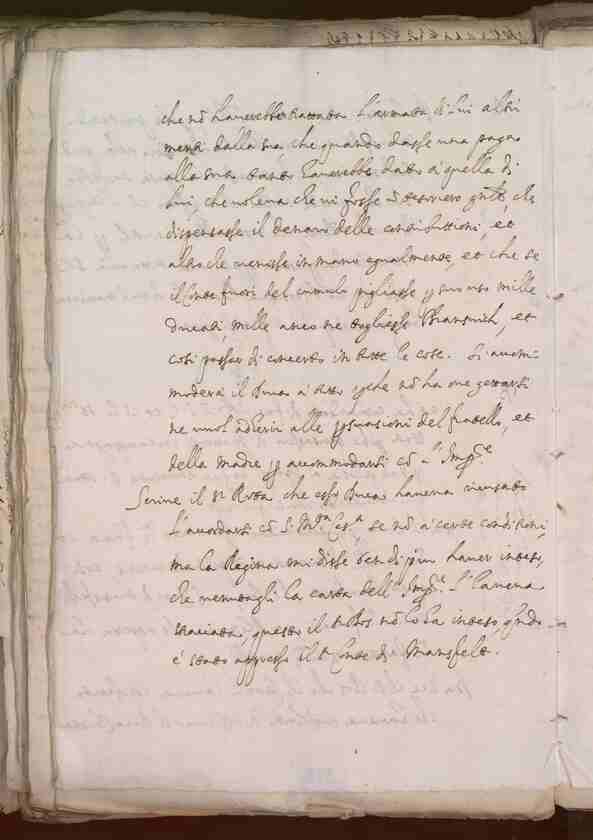 che nõ hauerebbe trattata l'armata di lui altri
menti dalla sua che quando dasse una paga
alla sua tanto hauerebbe dato a' quella di
lui, che uoleua che ui fosse õ tesoriero gnãle, che
dispensasse il denaro delle contributtioni, et
altro che uenisse in mano egualmente, et che se
il Conte fuori del cumulo pigliasse p suo uso mille
Ducati, mille anco ne togliesse Bransuich, et
cosi passar di concerto in tutte le cose. Si accom̃
moderà il Duca a tutto pche nõ ha oue gettarsi
ne vuol aderir alle psuasioni del fratello, et
della Madre p accommodarsi cõ l'Impre
Scriue il Sr Rota che esso Duca haueua ricusato
l'accordarsi cõ S. Mtà Ces.a se nõ a' certe conditioni,
ma la Regina mi disse hauer inteso,
che uenutagli la carta dell'Impre l'haueua
stracciata, questo il Rota nõ lo ha inteso, qñdo
e' stato appresso il Sr Conte di Mansfelt.